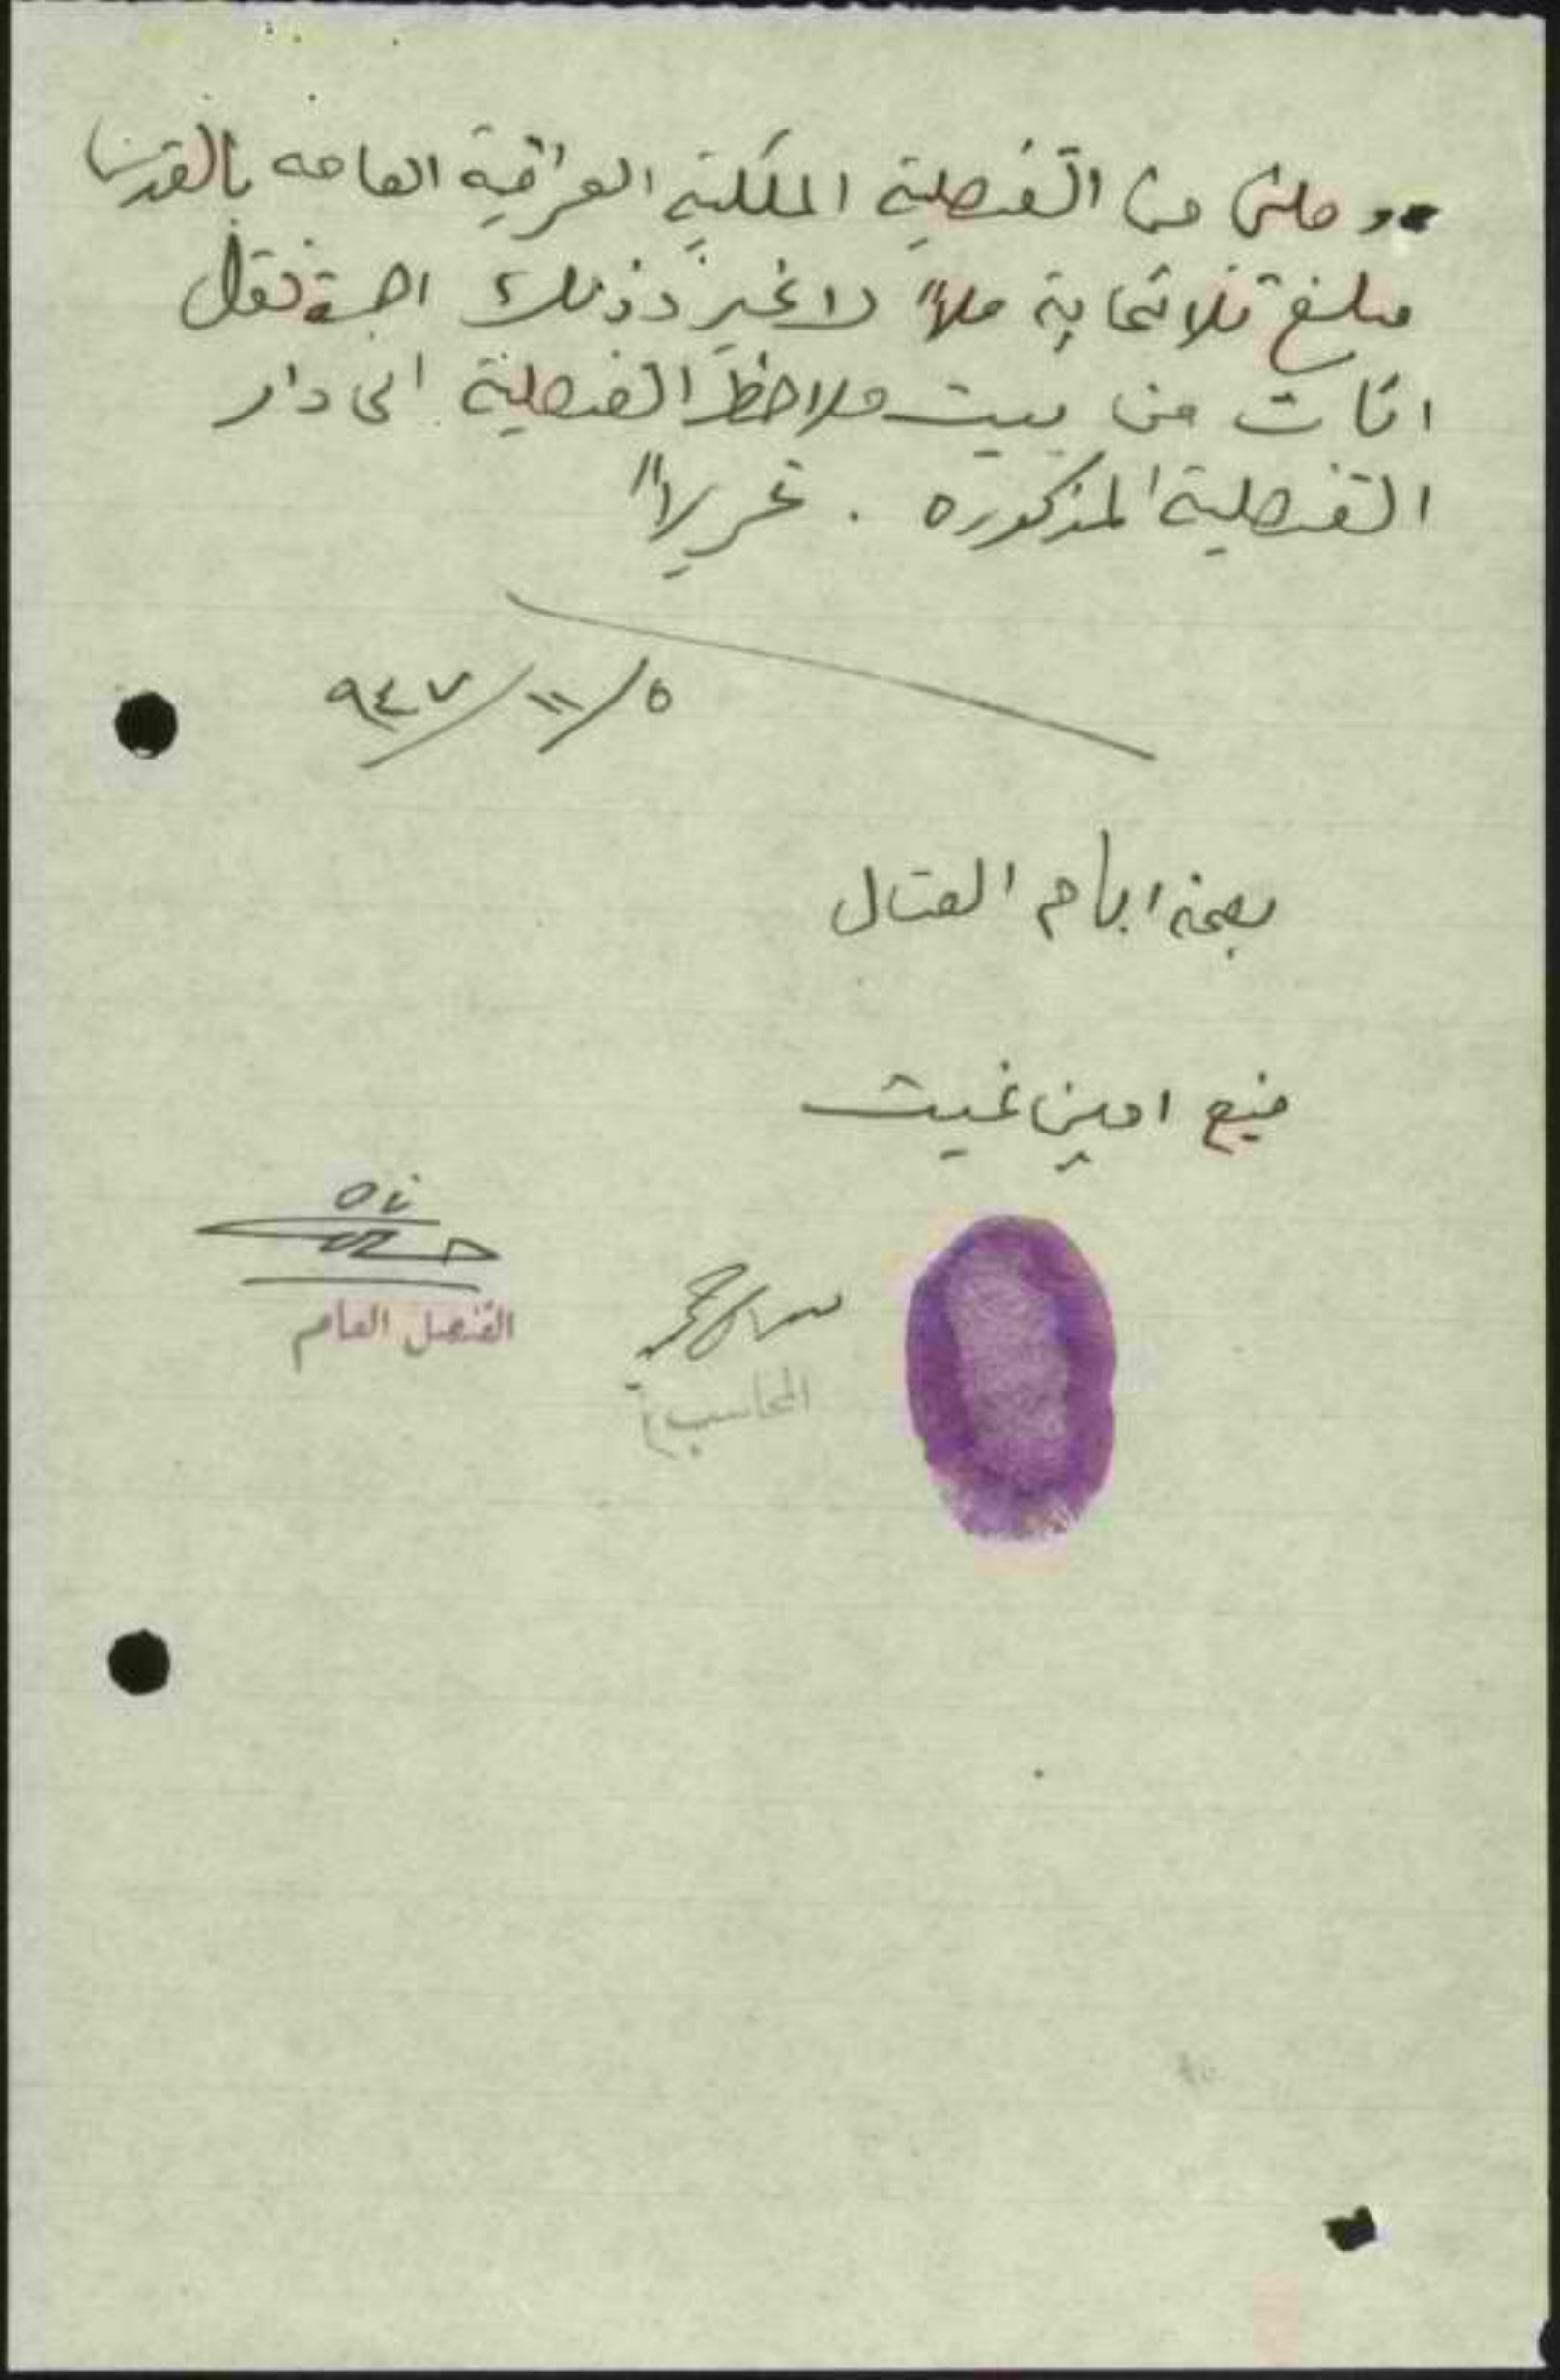 وصلني من القنصلية الملكية العراقية العامه بالقدس
مبلغ ثلاثماية ملاً لا غير وذلك اجرة نقل
اثاث من بيت ملاحظ القنصلية الى دار
القنصلية المذكوره . تحريراً
٥/١١/٩٤٧
بصمة ابهام العتال
منيع امين غيث
القنصل العام
المحاسب